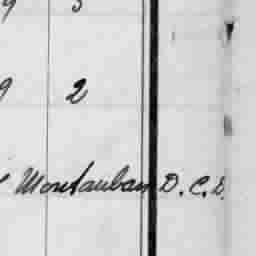 9 3
9 2
Montauban D. C. D.